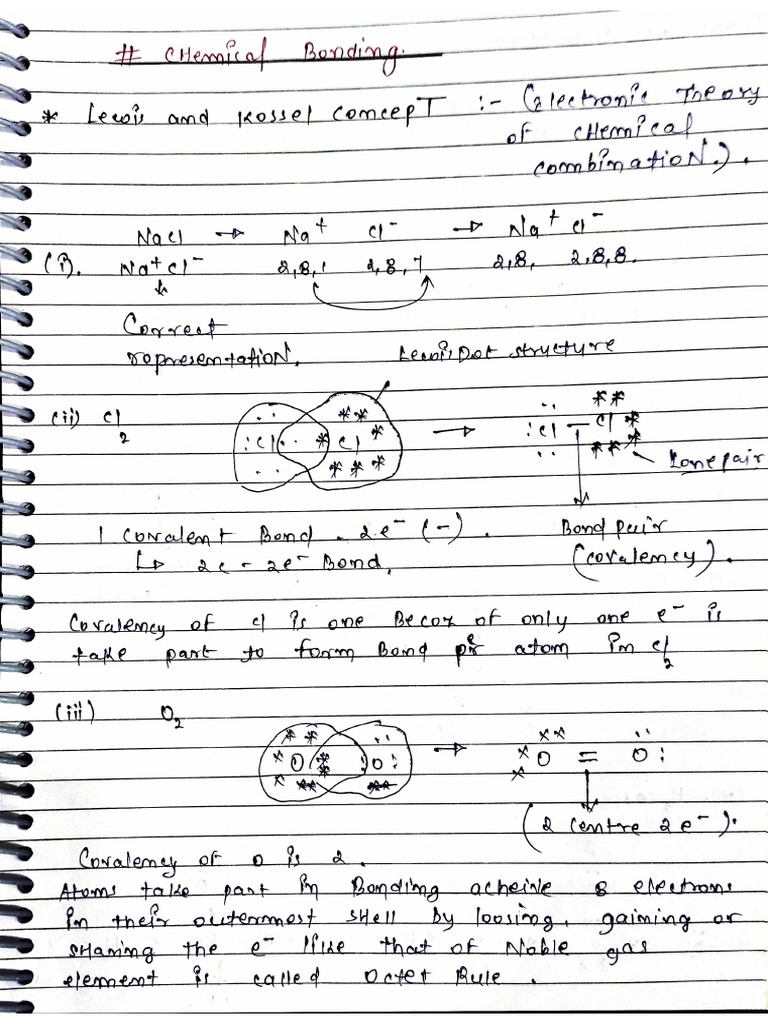 # CHemical Bonding.
* Lewis and Kossel concepT :- (Electronic Theory
of CHemical
combinatioN.).
NaCl → Na⁺ Cl⁻ → Na⁺ Cl⁻
(i). Na⁺Cl⁻ 2,8,1 2,8,7 2,8, 2,8,8.
Correct
representatioN. Lewis Dot structure
(ii) Cl₂ :Cl·· * Cl * → :Cl — Cl *
Lone pair
1 Covalent Bond - 2e⁻ (-). Bond pair
↳ 2c - 2e⁻ Bond. (covalency).
Covalency of cl is one Becoz of only one e⁻ is
take part to form Bond per atom in cl₂
(iii) O₂ O O: → O = O:
(2 centre 2e⁻).
Covalency of O is 2.
Atoms take part in Bonding acheive 8 electrons
in their outermost shell by loosing, gaining or
sHaring the e⁻ like that of Noble gas
element is called Octet Rule.